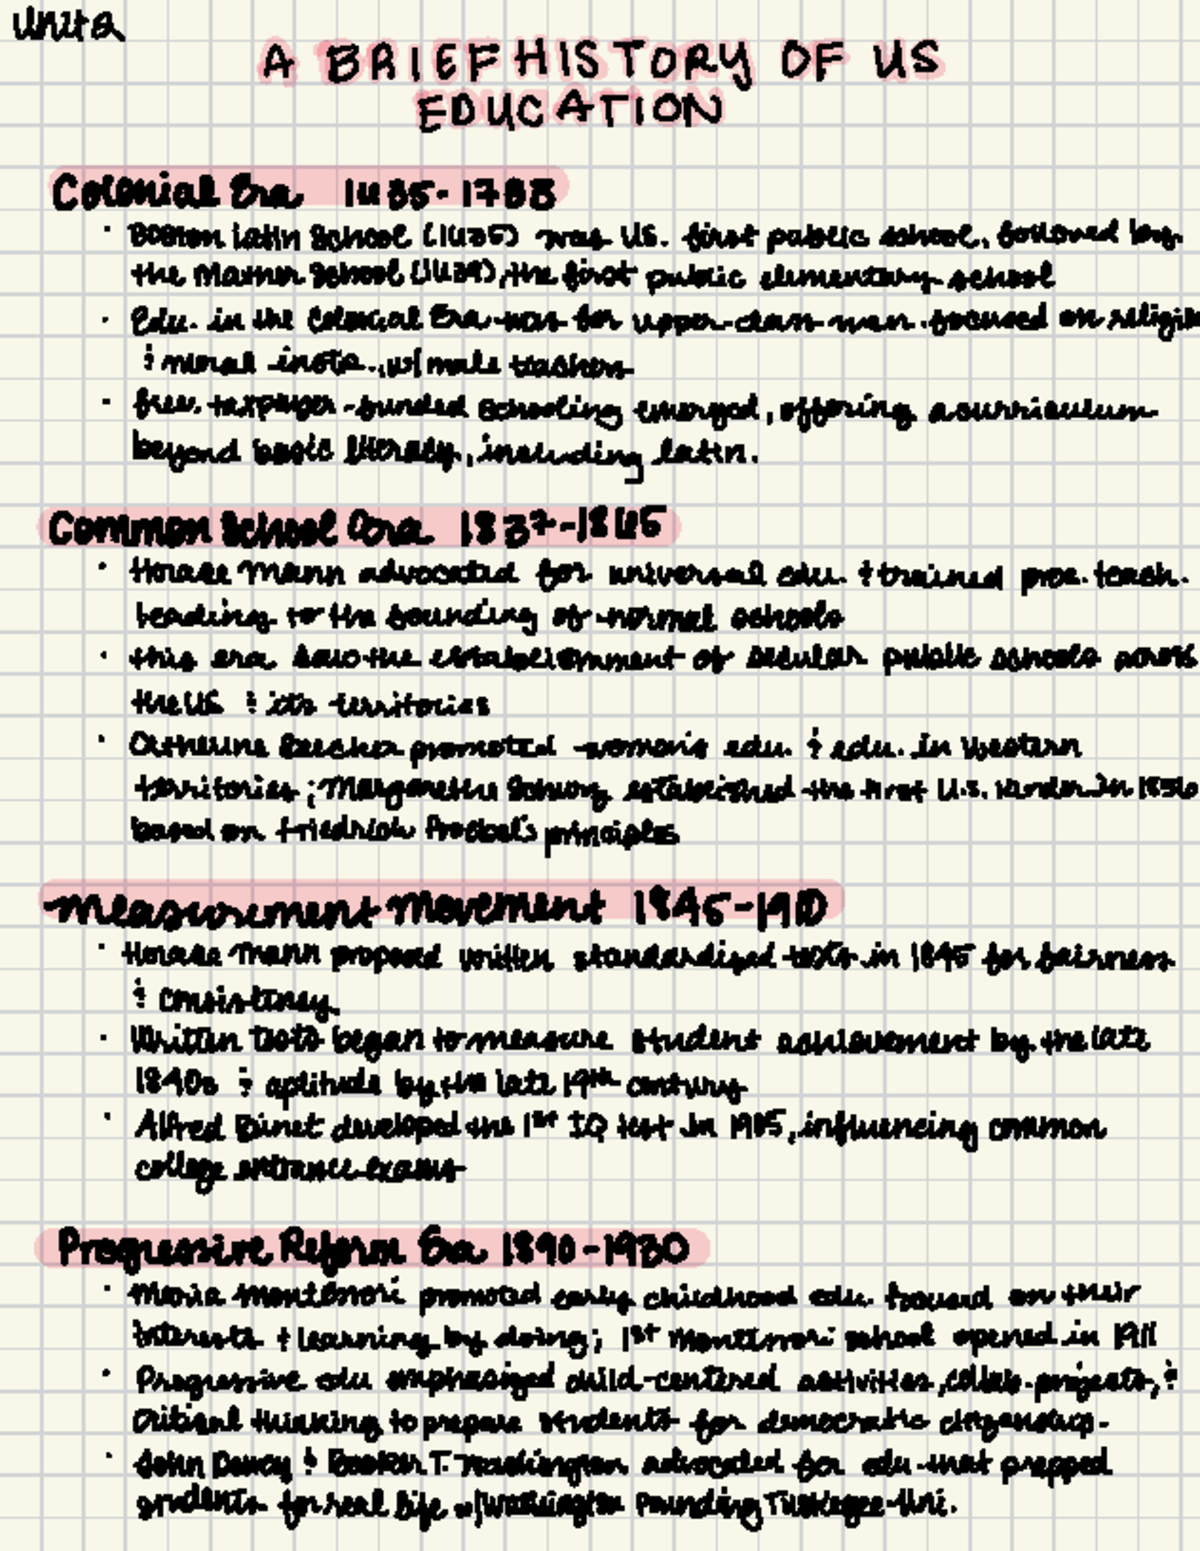 Unit 2
A BRIEF HISTORY OF US
EDUCATION
Colonial Era 1635-1788
· Boston Latin School (1635) was US. first public school, followed by
the Mather School (1639), the first public elementary school
· Edu. in the Colonial Era was for upper-class men. focused on
& moral instr. w/ male teachers
· free, taxpayer-funded schooling emerged, offering a curriculum
beyond basic literacy, including latin.
Common School Era 1837-1865
· Horace Mann advocated for universal edu. & trained teach.
leading to the founding of normal schools
· this era saw the establishment of secular public schools across
the US & its territories
· Catherine Beecher promoted women's edu. & edu. in Western
territories; Margarethe Schurz established the first U.S. kinder. in 1856
based on Friedrich Froebel's principles
Measurement Movement 1845-1910
· Horace Mann proposed written standardized tests in 1845 for fairness
& consistency.
· Written tests began to measure student achievement by the late
1840s & aptitude by the late 19th century
· Alfred Binet developed the 1st IQ test in 1905, influencing common
college entrance exams
Progressive Reform Era 1890-1930
· Maria Montessori promoted early childhood edu. focused on their
interests & learning by doing; 1st Montessori school opened in 1911
· Progressive edu emphasized child-centered activities, collab. projects, &
critical thinking to prepare students for democratic
· John Dewey & Booker T. Washington advocated for edu that prepped
students for real life w/ Washington founding Tuskegee Uni.